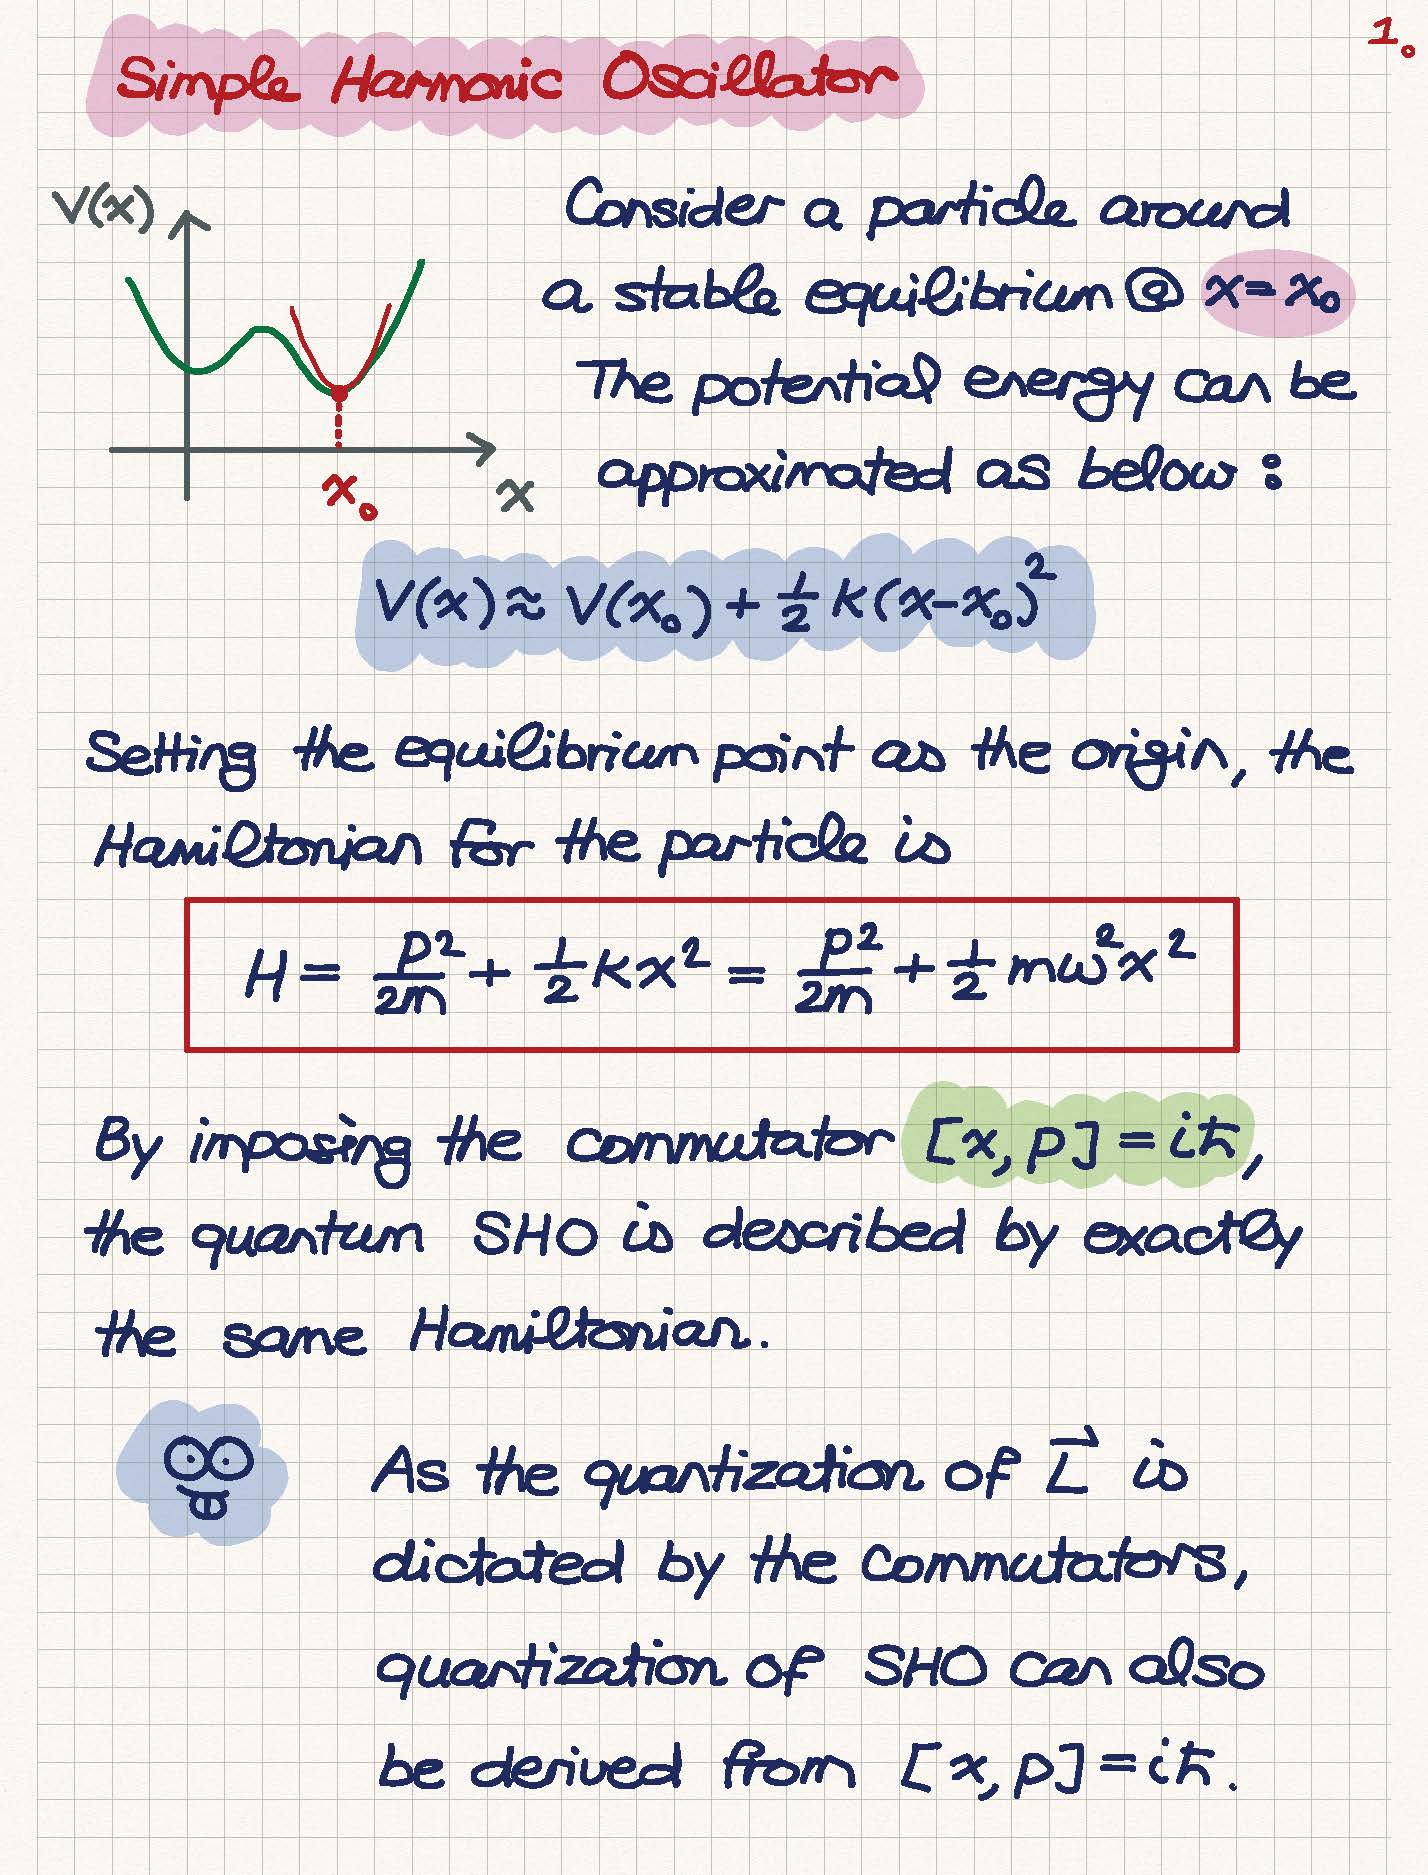 1.
Simple Harmonic Oscillator
V(x)
x₀
x
Consider a particle around
a stable equilibrium @ x = x₀
The potential energy can be
approximated as below :
V(x) ≈ V(x₀) + 1/2 k(x-x₀)²
Setting the equilibrium point as the origin, the
Hamiltonian for the particle is
H = p²/2m + 1/2 kx² = p²/2m + 1/2 mω²x²
By imposing the commutator [x, p] = iħ,
the quantum SHO is described by exactly
the same Hamiltonian.
As the quantization of L⃗ is
dictated by the commutators,
quantization of SHO can also
be derived from [x, p] = iħ.